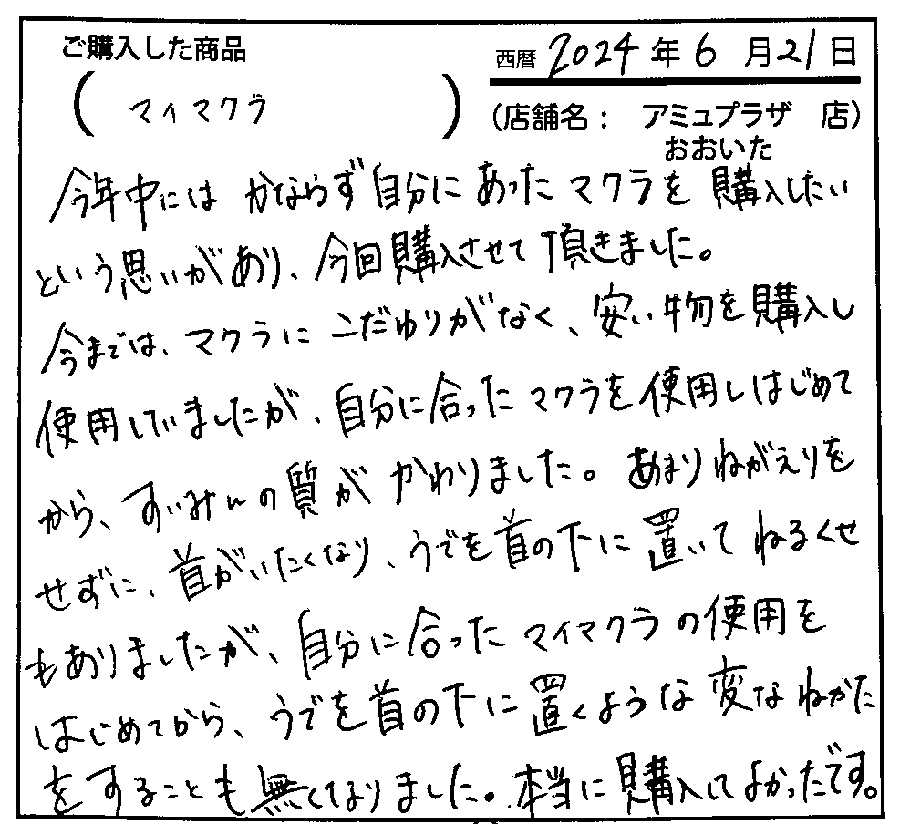 ご購入した商品
西暦 2024 年 6 月 21 日
( マイマクラ )
(店舗名： アミュプラザ 店)
おおいた
今年中には かならず自分にあったマクラを 購入したい
という思いがあり、今回購入させて頂きました。
今までは、マクラにこだわりがなく、安い物を購入し
使用していましたが、自分に合ったマクラを使用しはじめて
から、すいみんの質が かわりました。 あまりねがえりを
せずに、首がいたくなり、うでを首の下に置いてねるくせ
もありましたが、自分に合ったマイマクラの使用を
はじめてから、うでを首の下に置くような変なねかた
をすることも無くなりました。本当に購入してよかったです。